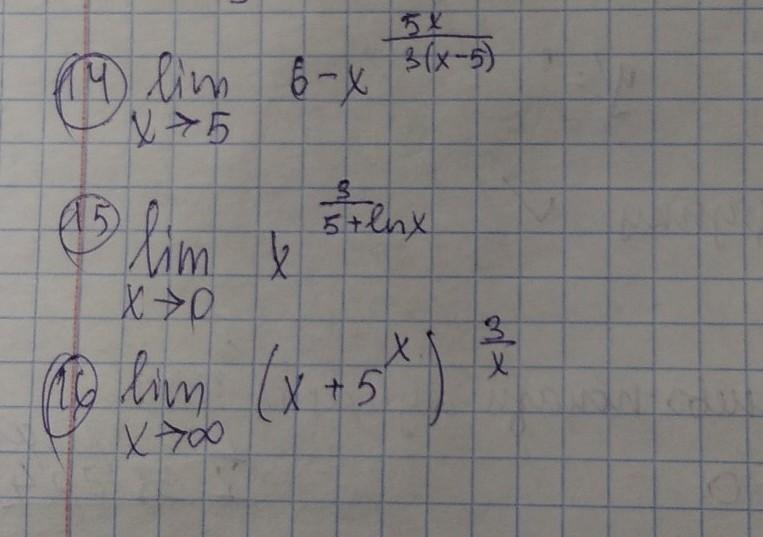 14 lim x→5 6-x^(5x/3(x-5))
15 lim x→0 x^(3/5+lnx)
16 lim x→∞ (x+5^x)^(3/x)